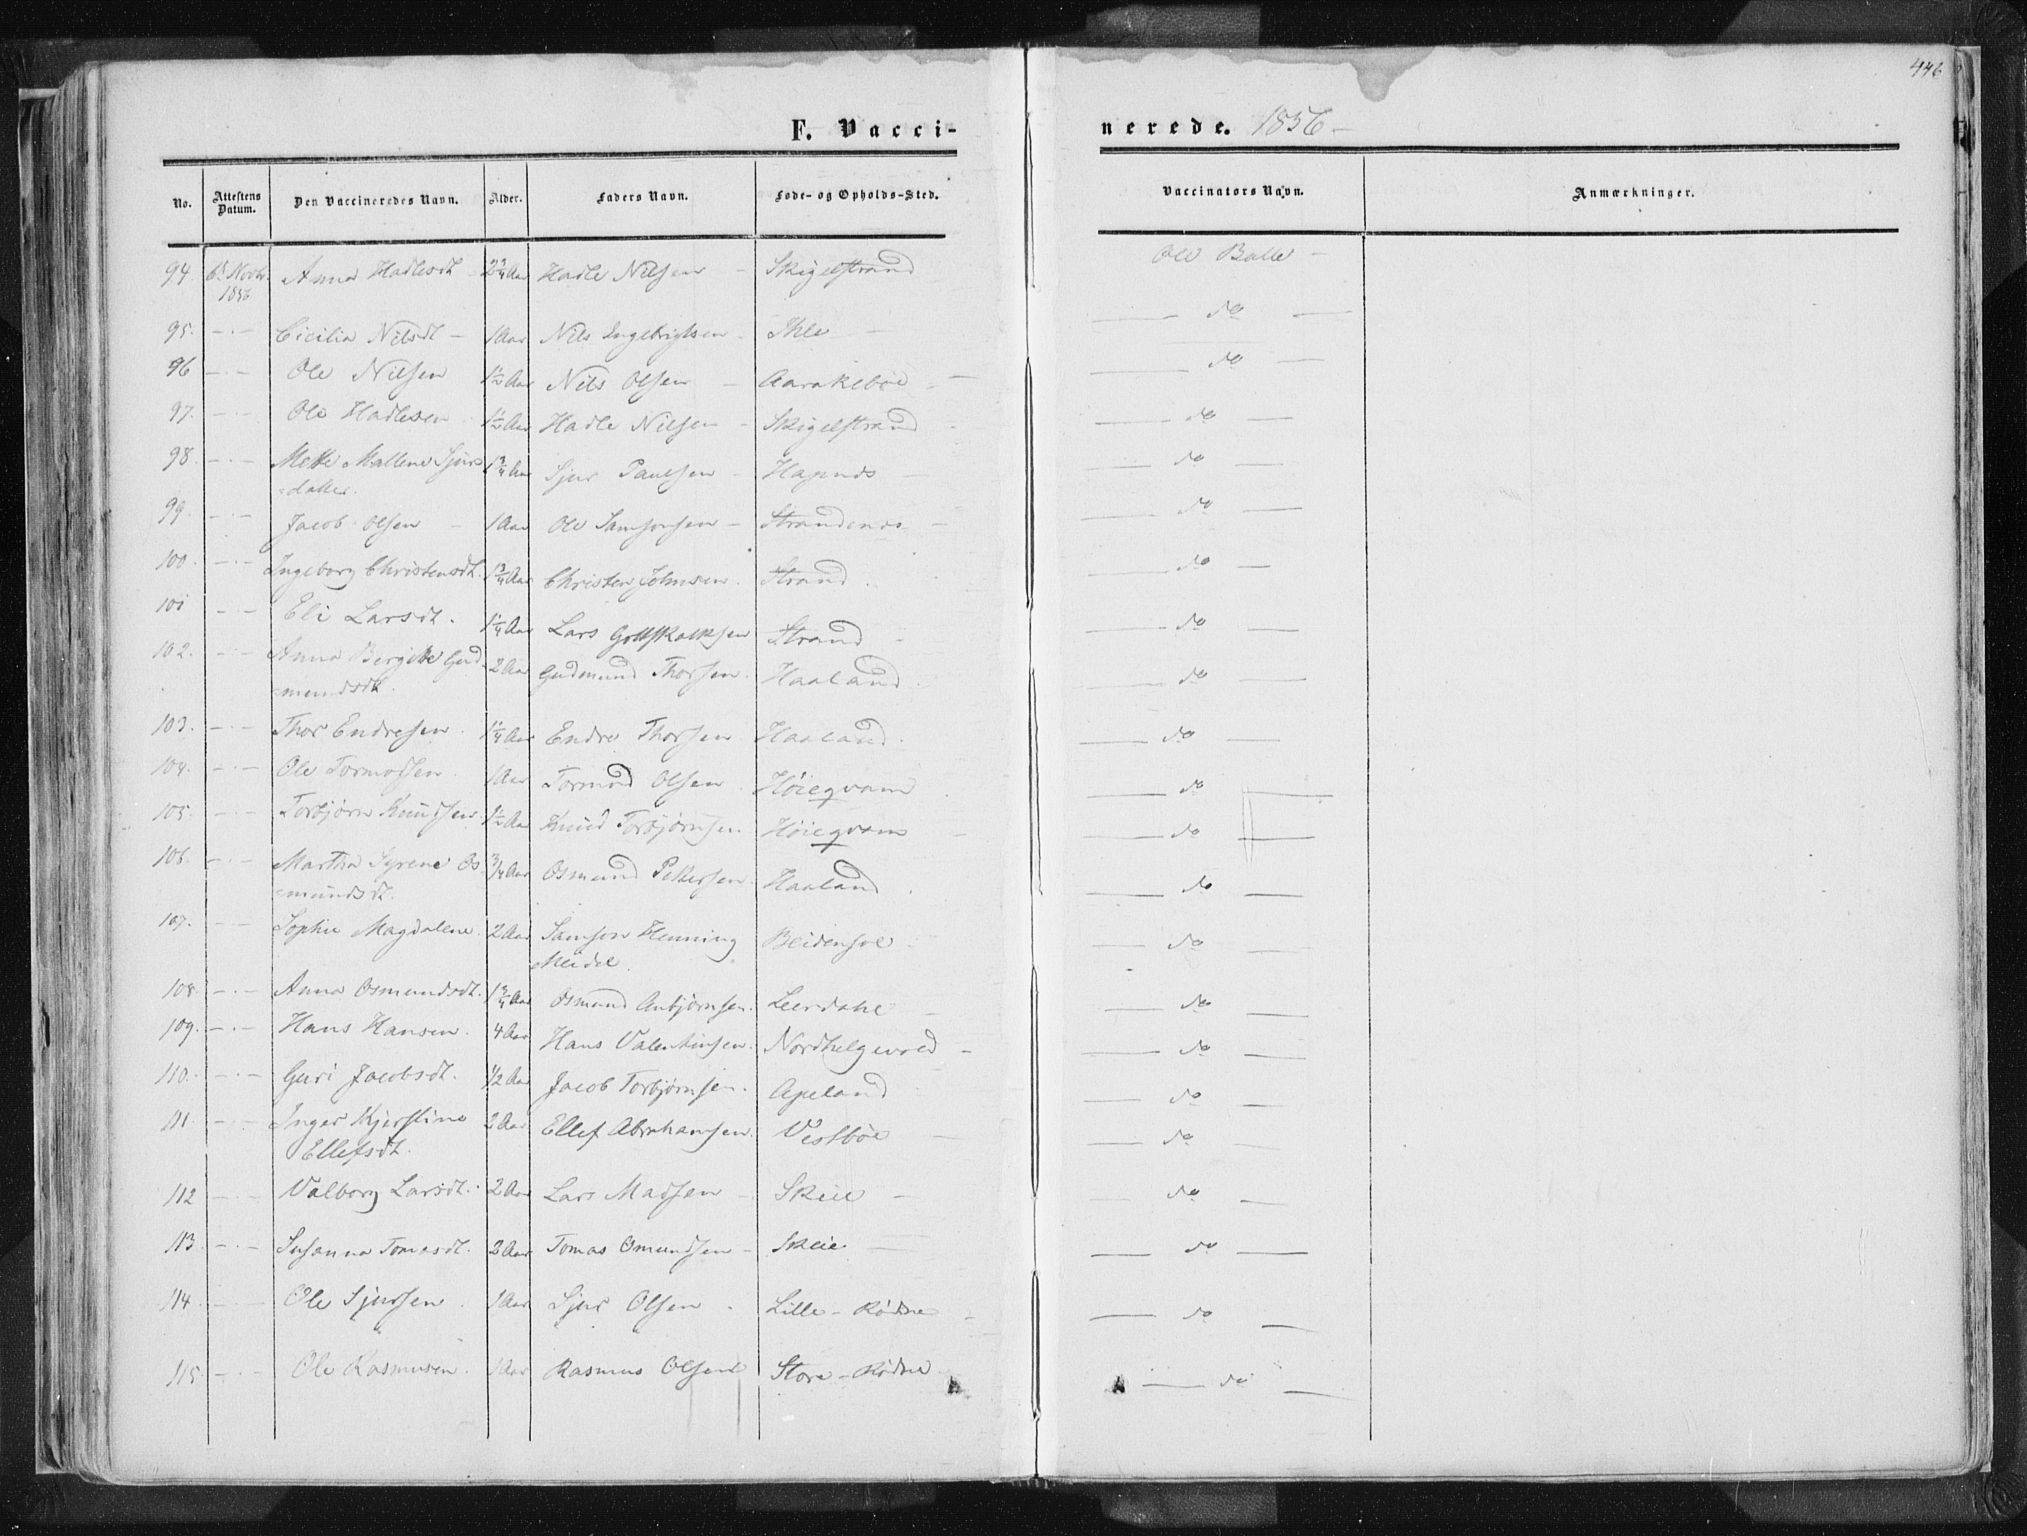 446
F. Vacci-nerede. 1856 -
No. Attestens Datum. Den Vaccineredes Navn. Alder. Faders Navn. Føde- og Opholds-Sted. Vaccinators Navn. Anmærkninger.
94. 6t Novbr. 1856 Anna Hadlesdt 2 3/4 Aar Hadle Nilsen - Skigelstrand Ole Balle -
95. -"- Cicilia Nilsdt - 1 Aar Nils Ingebrigtsen - Ihle - do -
96 -"- Ole Nilsen 1 1/2 Aar Nils Olsen - Aarakebøe - do -
97. -"- Ole Hadlesen 1 1/2 Aar Hadle Nilsen - Skigelstrand - do -
98. -"- Mette Mallene Sjurs 1 3/4 Aar Sjur Paulsen - Hapnes - do -
=datter.
99. -"- Jacob Olsen - 1 Aar Ole Samsonsen - Strandenes - do -
100. -"- Ingeborg Christensdt. 1 3/4 Aar Christen Johnsen. Strand. - do -
101 -"- Eli Larsdt. 1 1/4 Aar Lars Gottskalksen Strand - do -
102. -"- Anna Bergitte Gud- 2 Aar Gudmund Thorsen. Haaland. - do -
=mundsdt.
103. -"- Thor Endresen. 1 1/4 Aar Endre Thorsen Haaland. - do -
104. -"- Ole Tormodsen. 1 Aar Tormod Olsen. Høieqvam - do -
105. -"- Torbjørn Knudsen. 1 1/2 Aar Knud Torbjørnsen Høieqvam - do -
106. -"- Martha Syrene Os- 3/4 Aar Osmund Pettersen. Haaland. - do -
=mundsdt.
107. -"- Sophie Magdalene. 2 Aar Samson Henning Meidel. Bleidensoe - do -
108 -"- Anna Osmundsdt. 1 3/4 Aar Osmund Anbjørnsen. Leerdahl - do -
109. -"- Hans Hansen. 4 Aar Hans Valentinsen. Nordhelgevold - - do -
110. -"- Guri Jacobsdt. 1/2 Aar Jacob Torbjørnsen. Apeland - do -
111 -"- Inger Kjerstine 2 Aar Ellef Abrahamsen. Vestbøe - do -
Ellefsdt.
112 -"- Valborg Larsdt. 2 Aar Lars Madsen - Skeie - do -
113. -"- Susanna Tomasdt. 2 Aar Tomas Omundsen - Skeie - do -
114 -"- Ole Sjursen. 1 Aar Sjur Olsen - Lille - Rødne - do -
115 -"- Ole Rasmusen. 1 Aar Rasmus Olsen Store - Rødne - do -